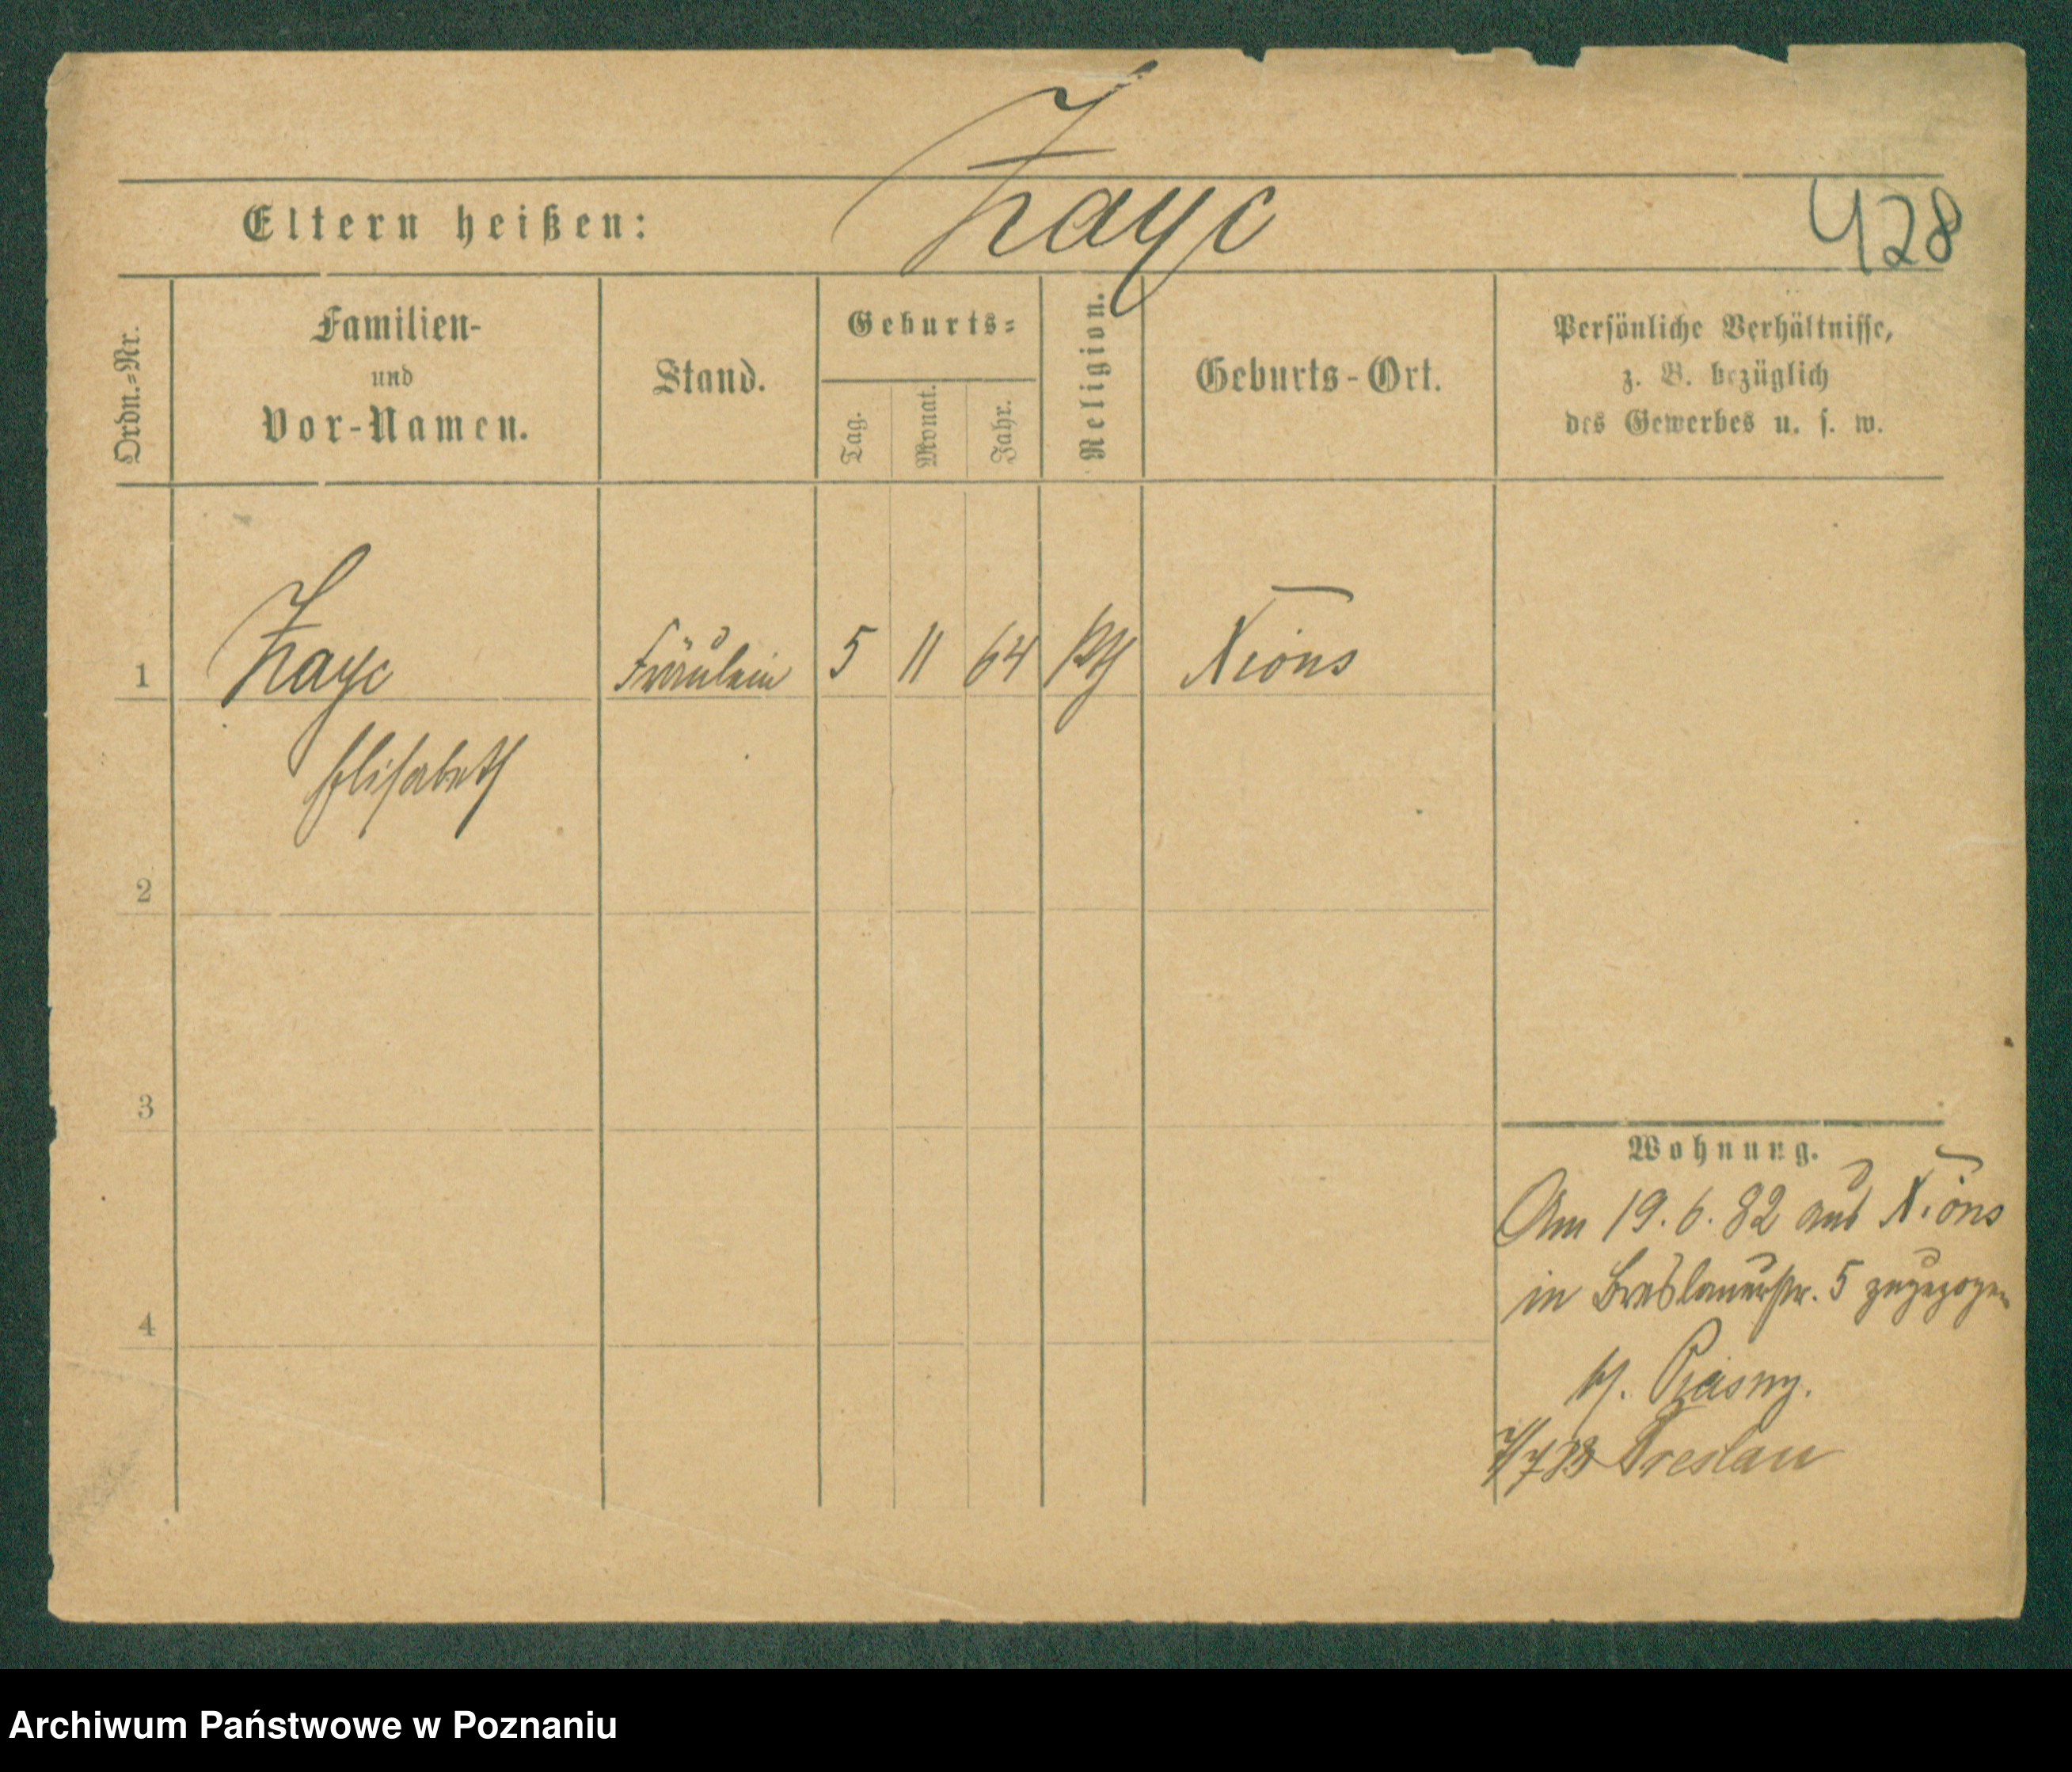 Zayc
428
Eltern heißen:
Ordn.=Nr.
Familien-
und
Vor-Namen.
Stand.
Geburts=
Tag.
Monat.
Jahr.
Religion.
Geburts-Ort.
Persönliche Verhältnisse,
z. B. bezüglich
des Gewerbes u. s. w.
1
Zayc
Fräulein
5
11
64
Xions
Elisabeth
2
3
4
Wohnung.
Am 19. 6. 82 aus Xions
in Breslauerstr. 5 zugezogen
7/7 83 Breslau
Archiwum Państwowe w Poznaniu